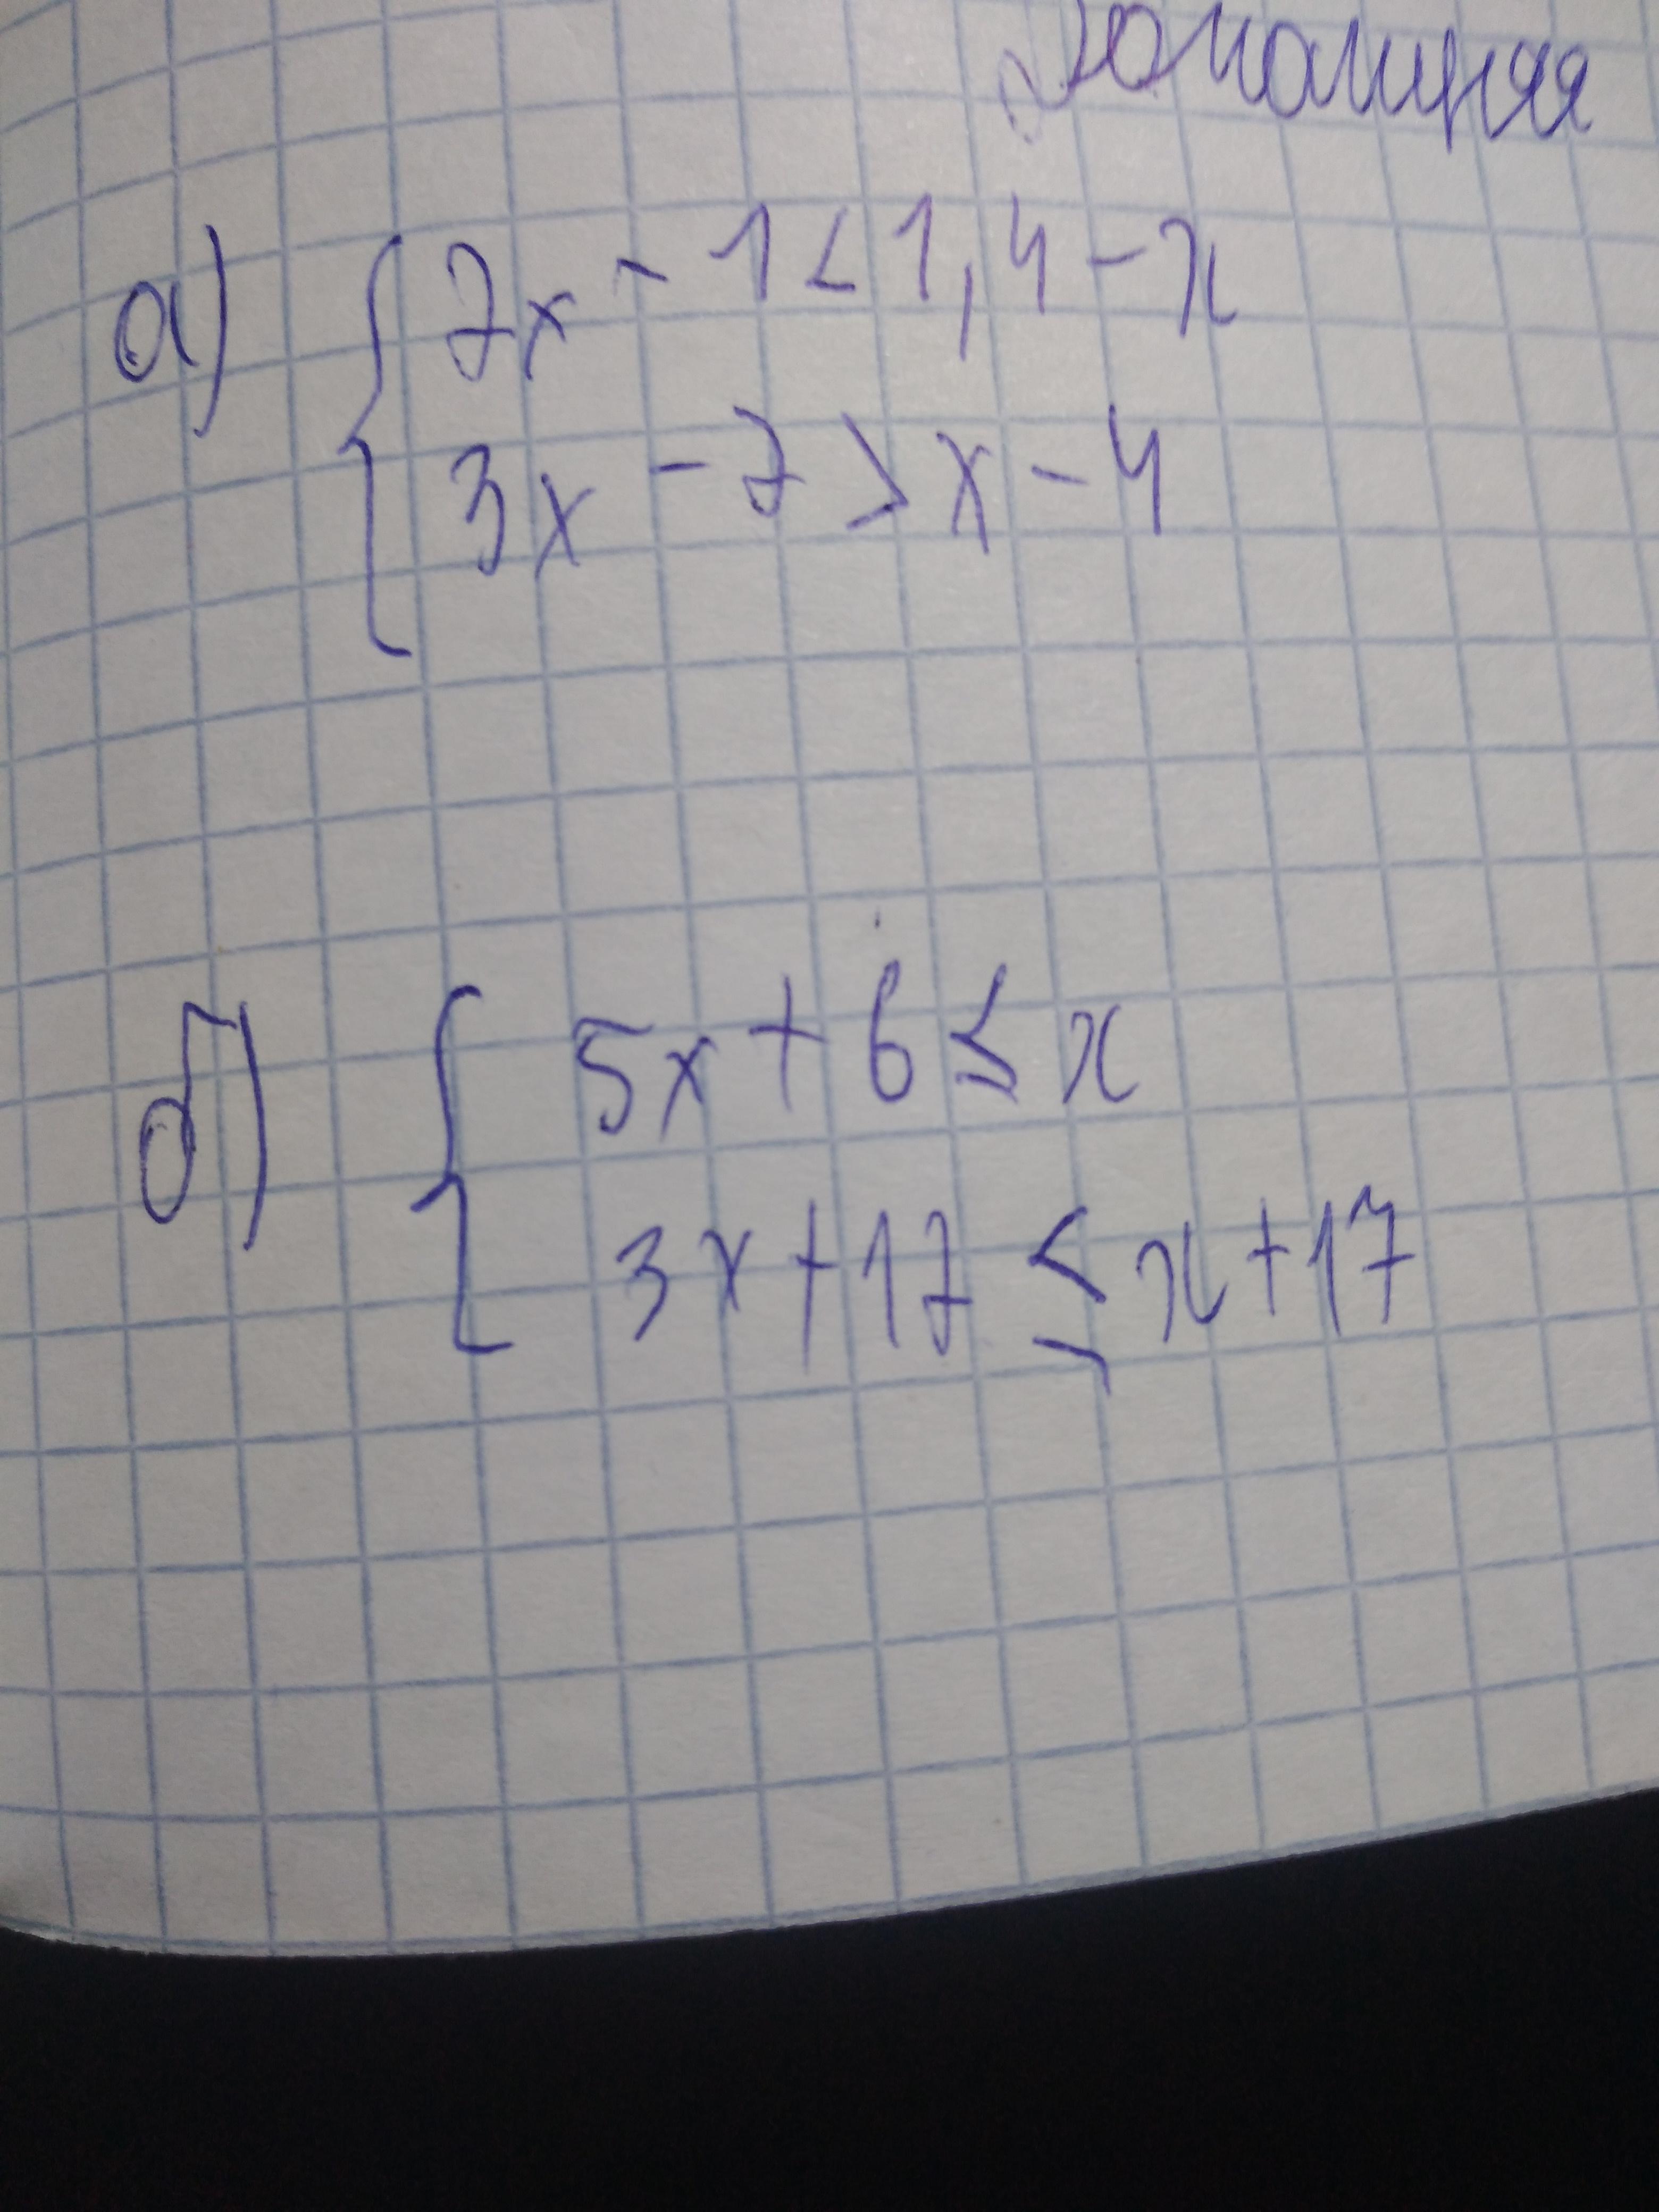 Домашняя
а) { 7x - 1 < 1,4 - x
3x - 7 > x - 4
б) { 5x + 6 ≤ x
3x + 17 ≤ x + 17